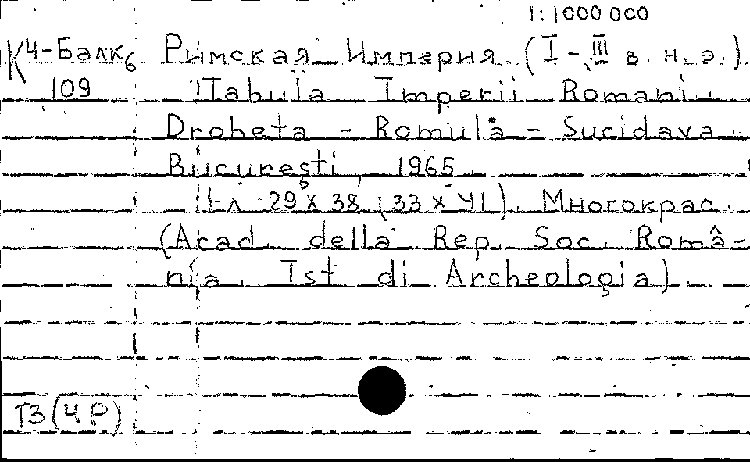 1:1000 000
К 4-Балк6 Римская Империя (I-III в. н. э.).
109 Tabula Imperii Romani.
Drobeta - Romula - Sucidava.
București, 1965.
1 л 29 x 38 (33 x 41). Многокрас.
(Acad. della Rep. Soc. Româ-
nia. Ist di Archeologia).
Т3(4Р)